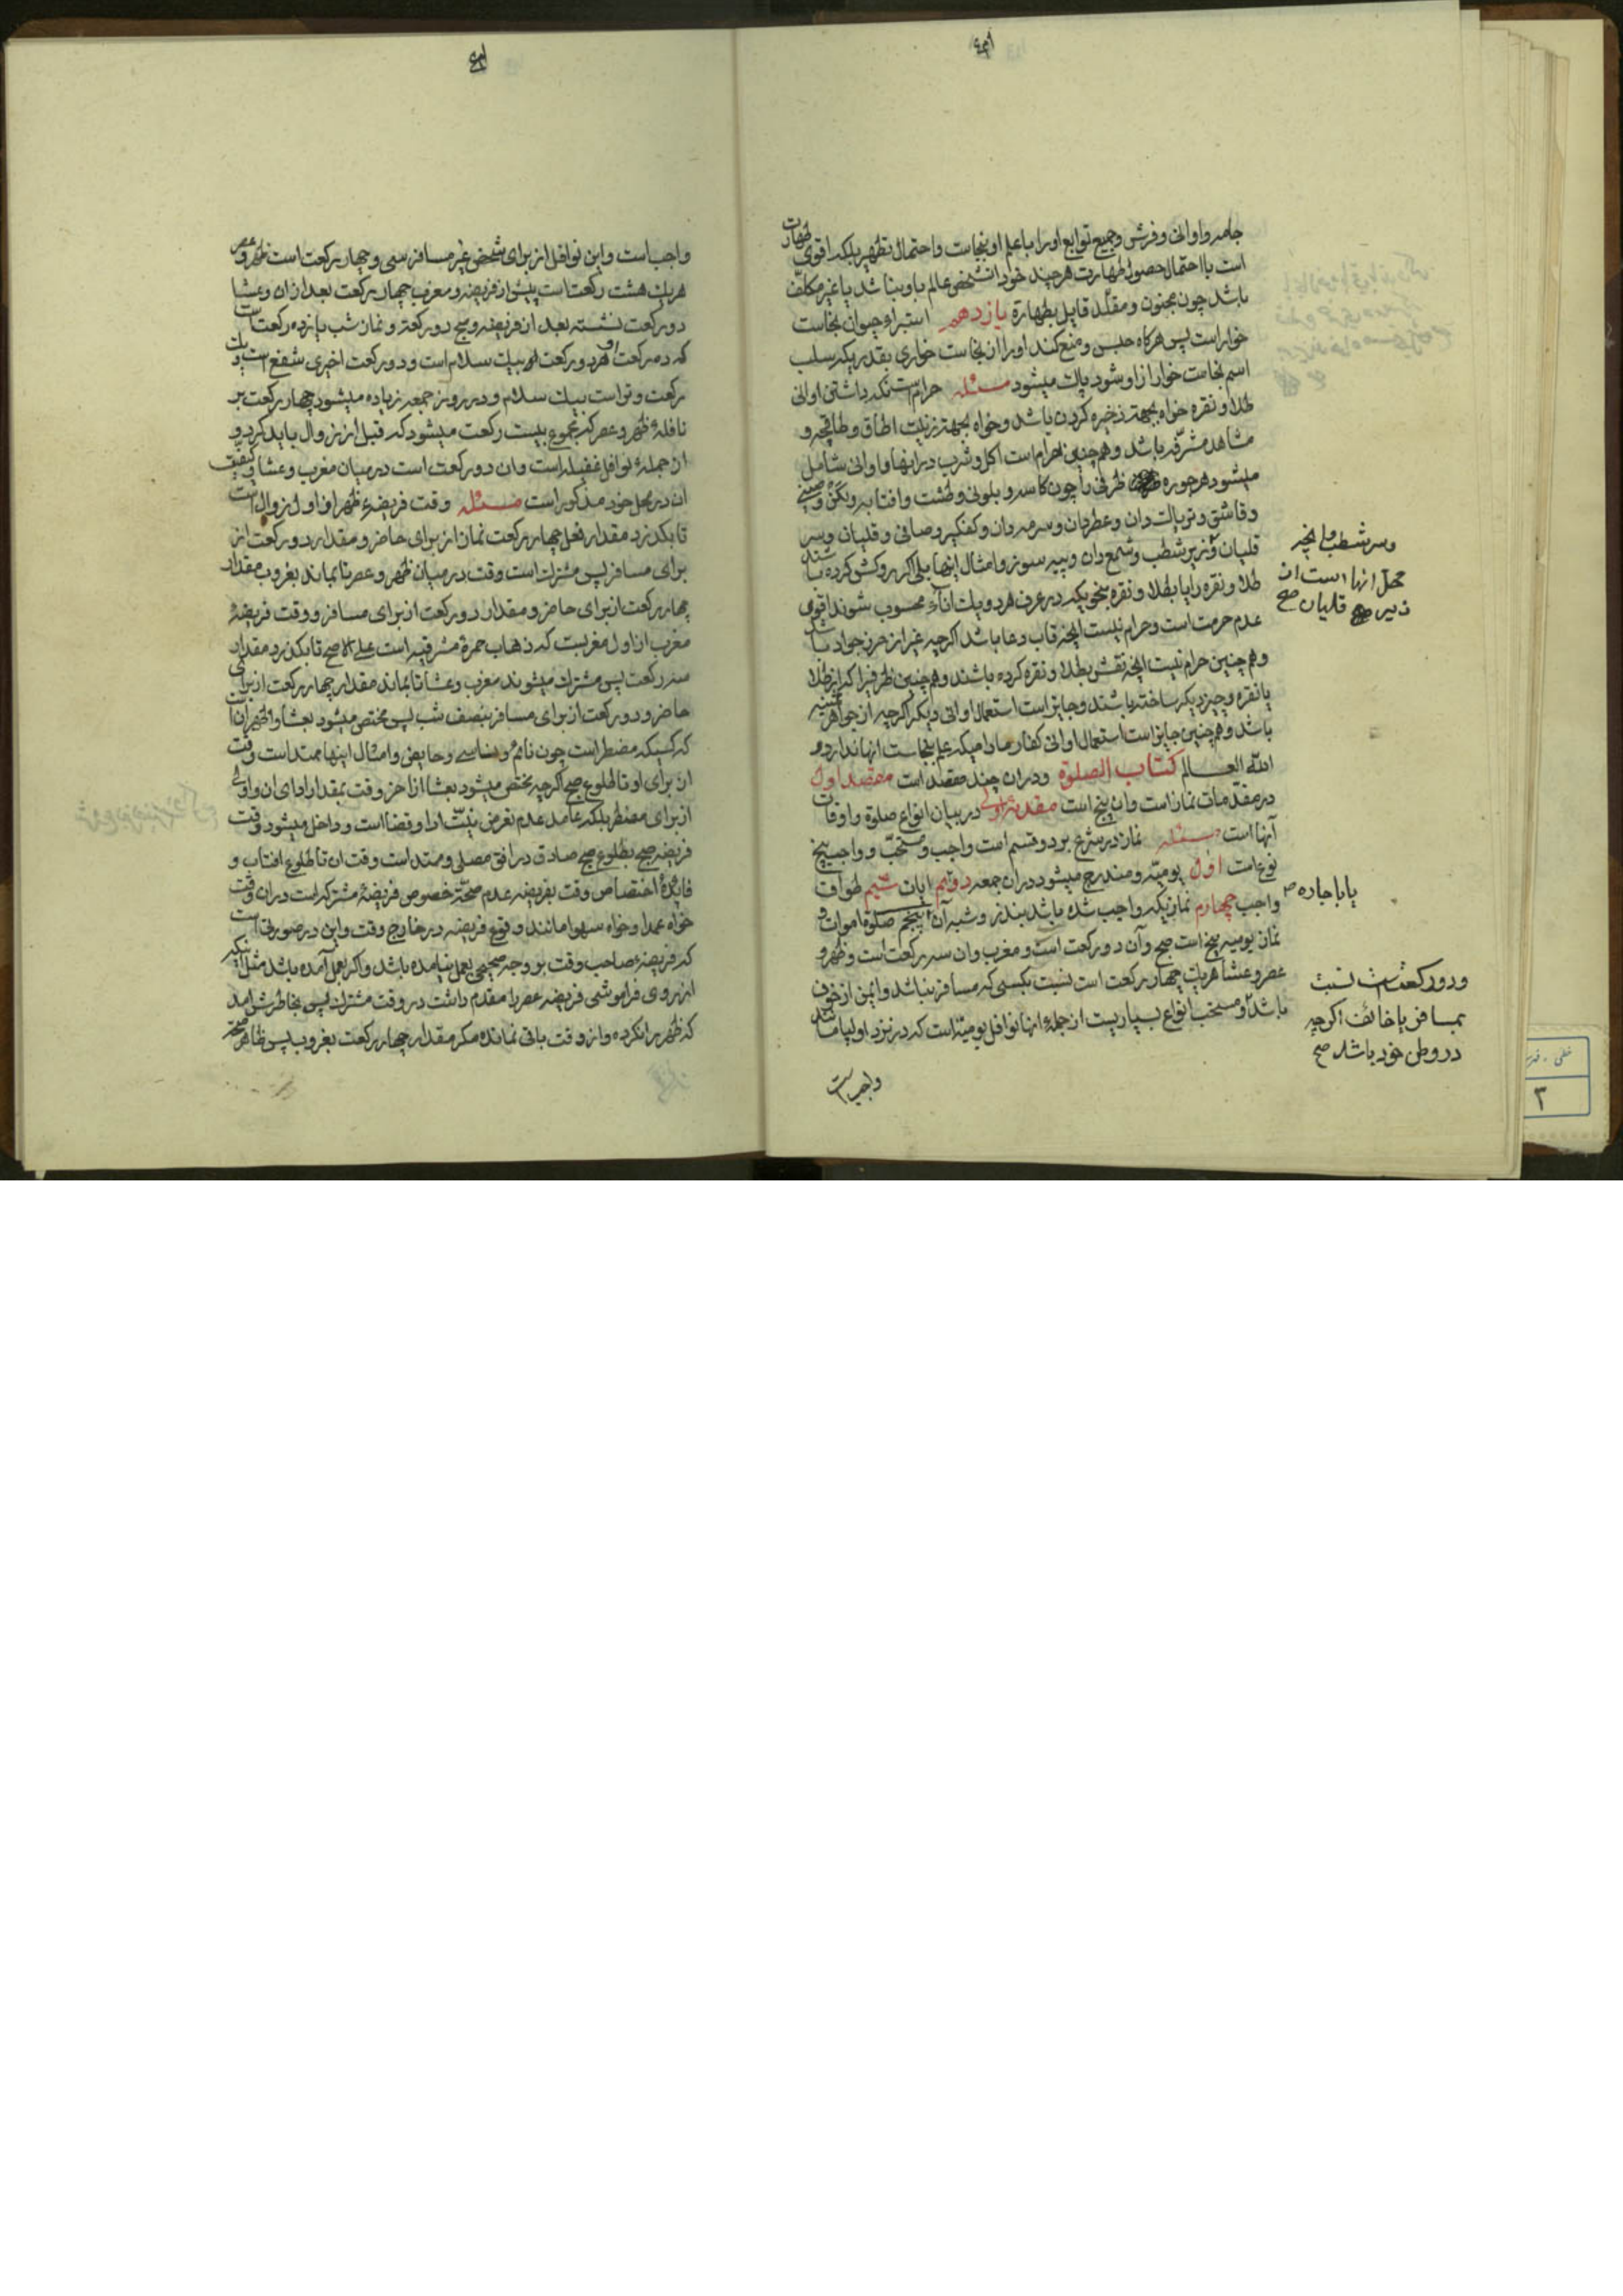 جامه و اوانی و فرش و جمیع توابع او را با علم او بنجاست و احتمال تطهیر بلکه اقوی طهارت
است با احتمال حصول طهارت هر چند خود آن شخص عالم باو نباشد یا غیر مکلف
باشد چون مجنون و مقلد قایل بطهارة یازدهم استبراء حیوان نجاست
خوار است پس هرگاه حبس و منع کند او را از نجاست خواری بقدریکه سلب
اسم نجاست خوار از او شود پاک میشود مسئله حرام است نگه داشتن اوانی
طلا و نقره خواه بجهة ذخیره کردن باشد و خواه بجهة زینت اطاق و طاقچه و
مشاهد مشرفه باشد و همچنین حرام است اکل و شرب در اینها و اوانی شامل
میشود هر جوره ظرفی را چون کاسه و بلونی و طشت و افتابه و لگن و صینی
و قاشق و تریاک دان و عطردان و سرمه دان و کفگیر و صافی و قلیان و سر
قلیان و زیر شطب و شمع دان و پیه سوز و امثال اینها بلی اگر روکش کرده باشند
طلا و نقره را یا بطلا و نقره بنحویکه در عرف هر دو یک اناء محسوب شوند اقوی
عدم حرمت است و حرام نیست آنچه قاب دعا باشد اگر چه غیر از حرز جواد باشد
و همچنین حرام نیست آنچه نقش بطلا و نقره کرده باشند و همچنین ظرفیرا که از طلا
یا نقره و چیز دیگر ساخته باشند و جایز است استعمال اوانی دیگر اگر چه از جواهر ثمینه
باشد و همچنین جایز است استعمال اوانی کفار مادامیکه علم بنجاست آنها ندارد و
الله العالم کتاب الصلوة و در آن چند مقصد است مقصد اول
در مقدمات نماز است و آن پنج است مقدمه اولی در بیان انواع صلوة و اوقات
آنها است مسئله نماز در شرع بر دو قسم است واجب و مستحب و واجب پنج
نوع است اول یومیه و مندرج میشود در آن جمعه دویم آیات سیم طواف
واجب چهارم نمازیکه واجب شده باشد بنذر و شبه آن پنجم صلوة اموات و
نماز یومیه پنج است صبح و آن دو رکعت است و مغرب و آن سه رکعت است و ظهر و
عصر و عشا هر یک چهار رکعت است نسبت بکسی که مسافر نباشد و ایمن از خوف
باشد و مستحب انواع بسیاریست از جمله آنها نوافل یومیه است که در نزد اولیا مانند
واجب است
و سر شطب و آنچه
محل آنها است از
زیر قلیان صح
یا باجاره صح
و دو رکعت است نسبت
بمسافر یا خائف اگر چه
در وطن خود باشد صح
واجب است و این نوافل از برای شخص غیر مسافر سی و چهار رکعت است ظهر و عصر
هر یک هشت رکعت است پیش از فریضه و مغرب چهار رکعت بعد از آن و عشا
دو رکعت نشسته بعد از فریضه و صبح دو رکعت و نماز شب یازده رکعت است
که ده رکعت آن هر دو رکعت بیک سلام است و دو رکعت اخیری شفع است و یک
رکعت وتر است بیک سلام و در روز جمعه زیاده میشود چهار رکعت بر
نافله ظهر و عصر که مجموع بیست رکعت میشود که قبل از زوال باید کرد و
از جمله نوافل غفیله است و آن دو رکعت است در میان مغرب و عشا و کیفیت
آن در محل خود مذکور است مسئله وقت فریضه ظهر از اول زوال است
تا بگذرد مقدار فعل چهار رکعت نماز از برای حاضر و مقدار دو رکعت از
برای مسافر پس مشترک است وقت در میان ظهر و عصر تا بماند بغروب مقدار
چهار رکعت از برای حاضر و مقدار دو رکعت از برای مسافر و وقت فریضه
مغرب از اول مغربست که ذهاب حمرة مشرقیه است علی الاصح تا بگذرد مقدار
سه رکعت پس مشترک میشوند مغرب و عشا تا بماند مقدار چهار رکعت از برای
حاضر و دو رکعت از برای مسافر بنصف شب پس مختص میشود بعشا و اظهر آن است
که کسیکه مضطر است چون نائم و ناسی و حایض و امثال اینها ممتد است وقت
آن برای او تا طلوع صبح اگر چه مختص میشود بعشا از آخر وقت بمقدار ادای آن و اولی
از برای مضطر بلکه عامد عدم تعرض نیت ادا و قضا است و داخل میشود وقت
فریضه صبح بطلوع صبح صادق در افق مصلی و ممتد است وقت آن تا طلوع آفتاب و
فایده اختصاص وقت بفریضه عدم صحة خصوص فریضه مشترکه است در آن وقت
خواه عمدا و خواه سهوا مانند وقوع فریضه در خارج وقت و این در صورتی است
که فریضه صاحب وقت بر وجه صحیحی بعمل نیامده باشد و اگر بعمل آمده باشد مثل اینکه
از روی فراموشی فریضه عصر را مقدم داشت در وقت مشترک پس بخاطرش آمد
که ظهر را نکرده و از وقت باقی نمانده مگر مقدار چهار رکعت بغروب پس ظاهر صحة
۳